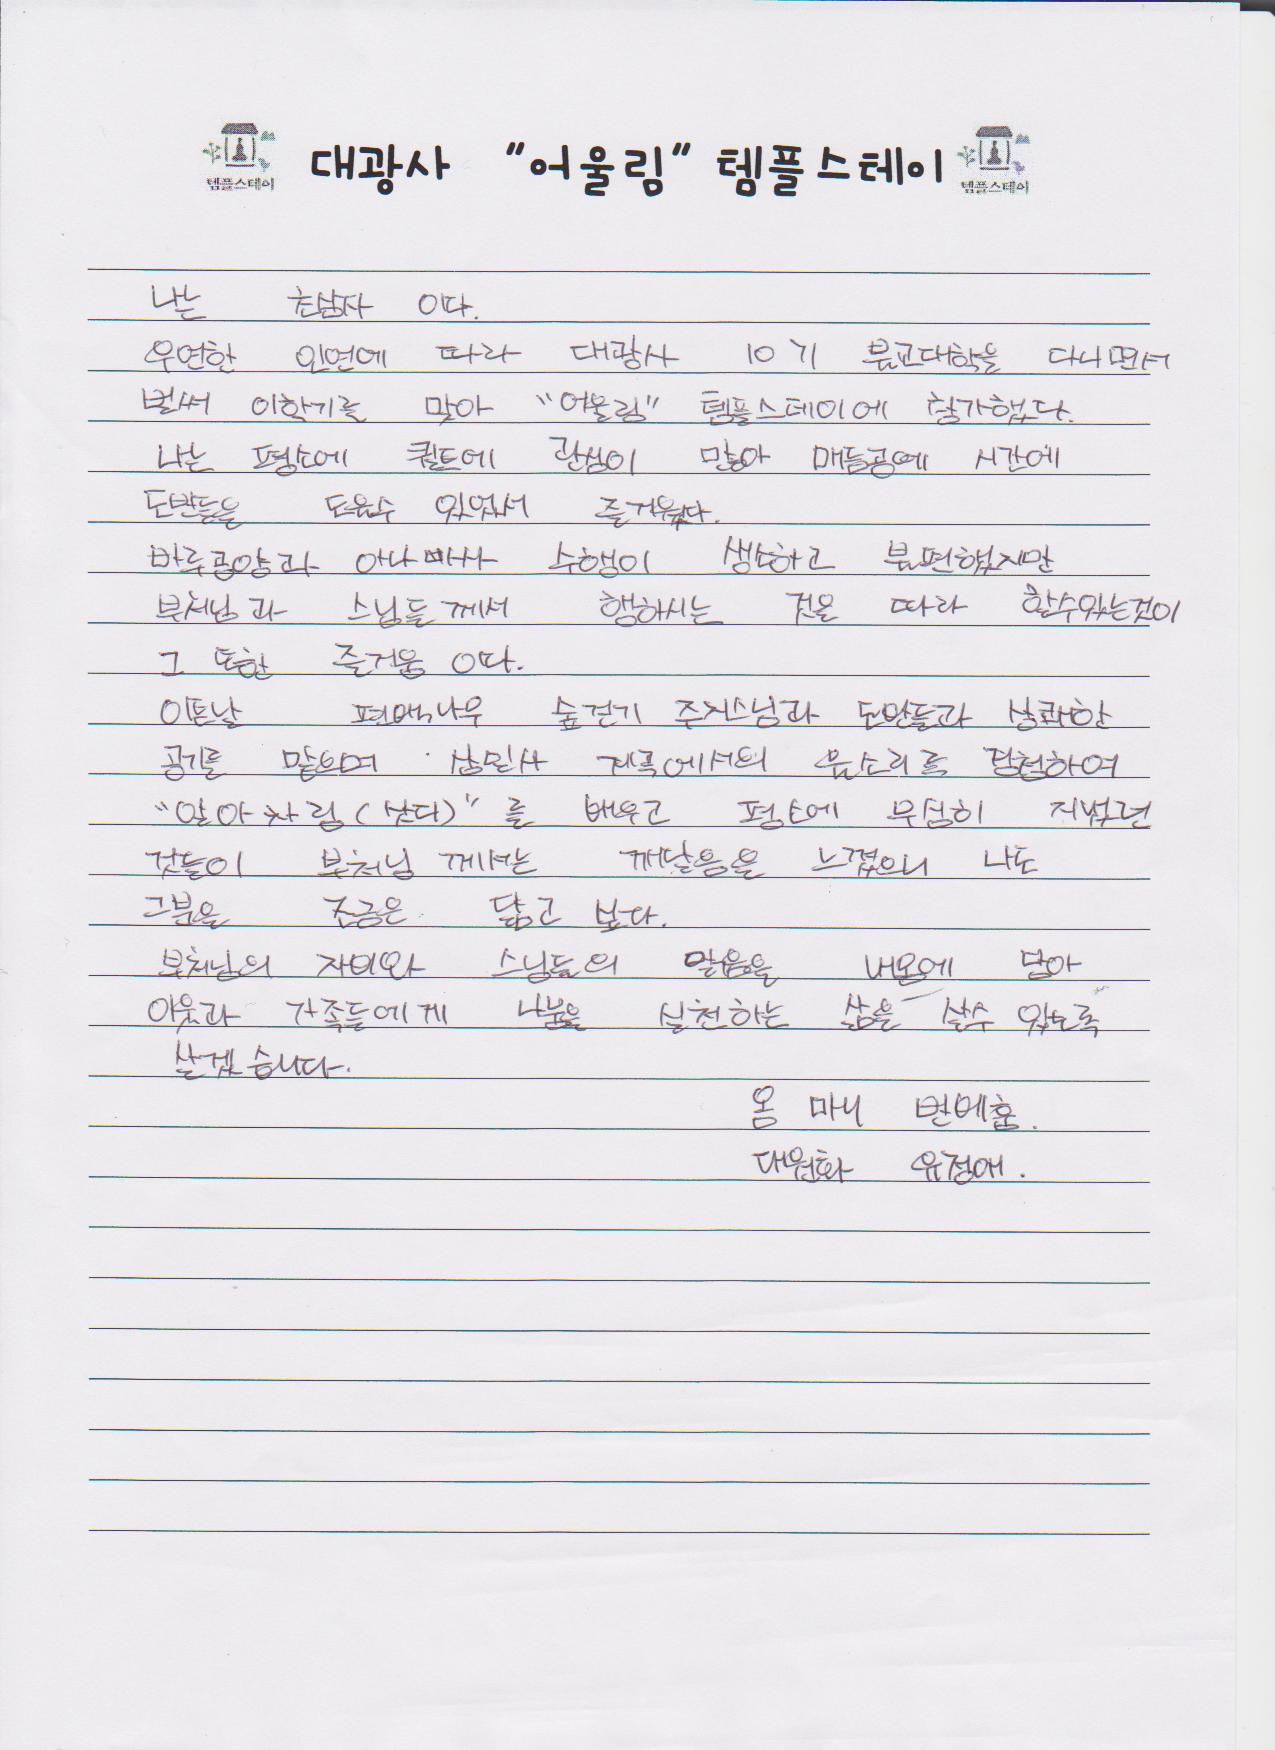 템플스테이 대광사 "어울림" 템플스테이 템플스테이
나는 초심자 이다.
우연한 인연에 따라 대광사 10기 불교대학을 다니면서
벌써 이학기를 맞아 "어울림" 템플스테이에 참가했다.
나는 평소에 퀼트에 관심이 많아 매듭공예 시간에
도반들을 도울수 있었서 즐거웠다.
바루공양과 아나빠사 수행이 생소하고 불편했지만
부처님과 스님들께서 행하시는 것을 따라 할수있는것이
그 또한 즐거움 이다.
이튿날 편백나무 숲걷기 주지스님과 도반들과 상쾌한
공기를 맡으며 계곡에서의 물소리를 하여
"알아차림( )"를 배우고 평소에 무심히 지났던
것들이 부처님께서는 깨달음을 느꼈으니 나도
그분을 조금은 닮고 보다.
부처님의 자비와 스님들의 말씀을 내몸에 담아
이웃과 가족들에게 나눔을 실천하는 삶을 살수 있도록
살겠습니다.
옴 마니 반메훔.
대원화 유정애.